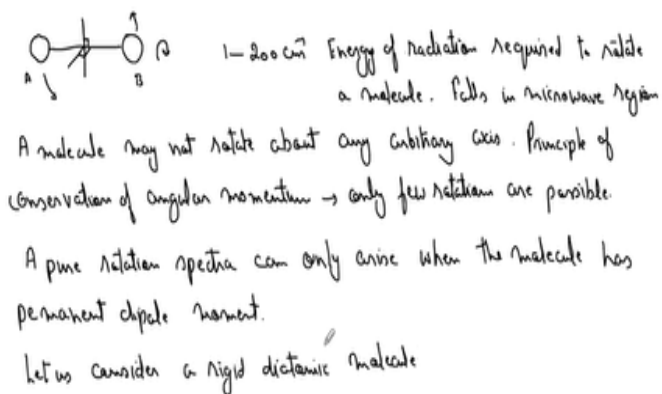 A B 1-200 cm⁻¹ Energy of radiation required to rotate
a molecule. Falls in microwave region
A molecule may not rotate about any arbitrary axis. Principle of
conservation of angular momentum → only few rotations are possible.
A pure rotation spectra can only arise when the molecule has
permanent dipole moment.
Let us consider a rigid diatomic molecule